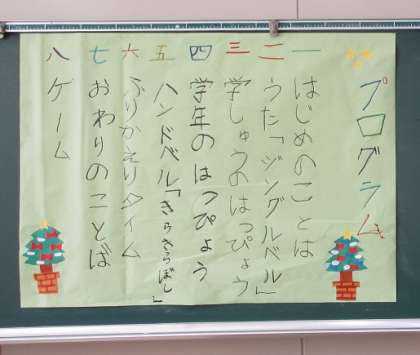 プログラム
一 はじめのことは
二 うた「ジングルベル」
三 学しゅうのはっぴょう
四 学年のはっぴょう
五 ハンドベル「きらきらぼし」
六 ふりかえりタイム
七 おわりのことば
八 ゲーム